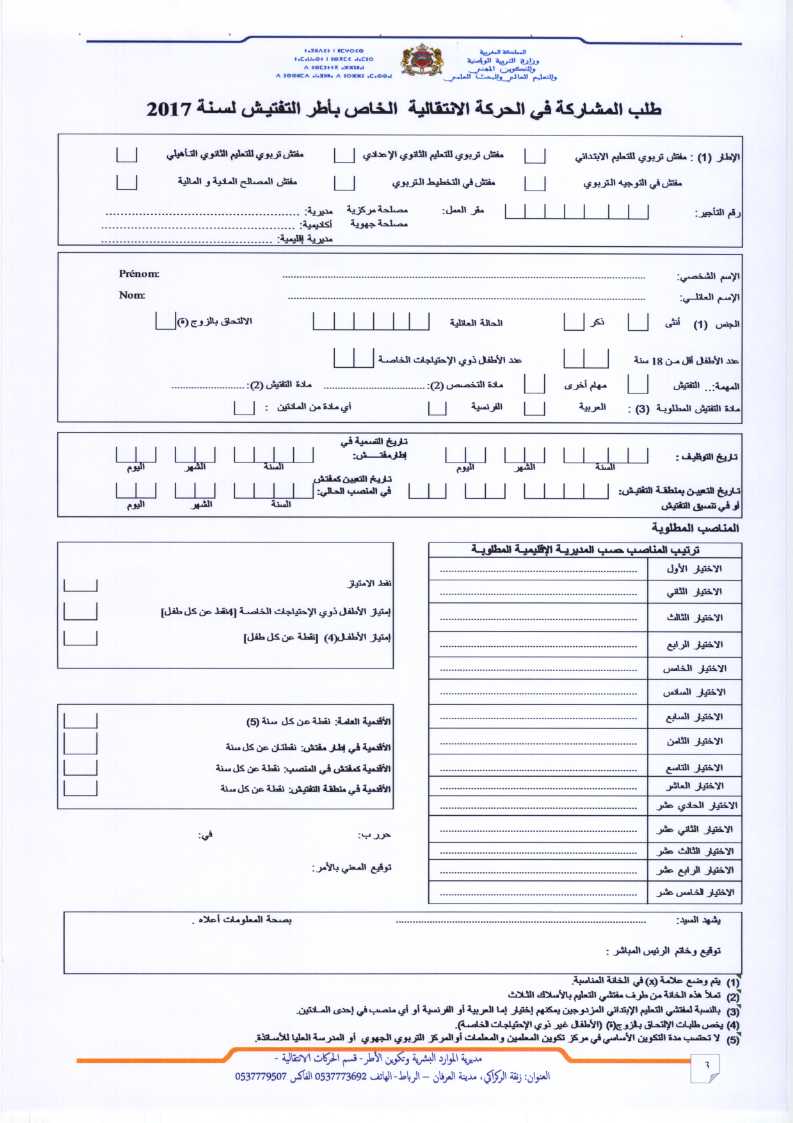 المملكة المغربية
وزارة التربية الوطنية
والتكوين المهني
والتعليم العالي والبحث العلمي
طلب المشاركة في الحركة الانتقالية الخاص بأطر التفتيش لسنة 2017
الإطار (1) : مفتش تربوي للتعليم الابتدائي مفتش تربوي للتعليم الثانوي الإعدادي مفتش تربوي للتعليم الثانوي التأهيلي
مفتش في التوجيه التربوي مفتش في التخطيط التربوي مفتش المصالح المادية و المالية
رقم التأجير: مقر العمل: مصلحة مركزية مديرية: ........
مصلحة جهوية أكاديمية: ........
مديرية إقليمية: ........
الإسم الشخصي: ........ Prénom:
الإسم العائلي: ........ Nom:
الجنس (1) أنثى ذكر الحالة العائلية الالتحاق بالزوج (ة)
عدد الأطفال أقل من 18 سنة عدد الأطفال ذوي الإحتياجات الخاصة
المهمة:.. التفتيش مهام أخرى مادة التخصص (2): ........ مادة التفتيش (2): ........
مادة التفتيش المطلوبة (3) : العربية الفرنسية أي مادة من المادتين :
تاريخ التوظيف : السنة الشهر اليوم تاريخ التسمية في إطار مفتش: السنة الشهر اليوم
تاريخ التعيين بمنطقة التفتيش: أو في تنسيق التفتيش تاريخ التعيين كمفتش في المنصب الحالي: السنة الشهر اليوم
المناصب المطلوبة
ترتيب المناصب حسب المديرية الإقليمية المطلوبة
الاختيار الأول ........
الاختيار الثاني ........
الاختيار الثالث ........
الاختيار الرابع ........
الاختيار الخامس ........
الاختيار السادس ........
الاختيار السابع ........
الاختيار الثامن ........
الاختيار التاسع ........
الاختيار العاشر ........
الاختيار الحادي عشر ........
الاختيار الثاني عشر ........
الاختيار الثالث عشر ........
الاختيار الرابع عشر ........
الاختيار الخامس عشر ........
نقط الامتياز
إمتياز الأطفال ذوي الإحتياجات الخاصة [4نقط عن كل طفل]
إمتياز الأطفال(4) [نقطة عن كل طفل]
الأقدمية العامة: نقطة عن كل سنة (5)
الأقدمية في إطار مفتش: نقطتان عن كل سنة
الأقدمية كمفتش في المنصب: نقطة عن كل سنة
الأقدمية في منطقة التفتيش: نقطة عن كل سنة
حرر ب: في:
توقيع المعني بالأمر:
يشهد السيد: ........ بصحة المعلومات أعلاه .
توقيع وخاتم الرئيس المباشر :
(1) يتم وضع علامة (x) في الخانة المناسبة.
(2) تملأ هذه الخانة من طرف مفتشي التعليم بالأسلاك الثلاث
(3) بالنسبة لمفتشي التعليم الإبتدائي المزدوجين يمكنهم إختيار إما العربية أو الفرنسية أو أي منصب في إحدى المادتين.
(4) يخص طلبات الإلتحاق بالزوج(ة) (الأطفال غير ذوي الإحتياجات الخاصة).
(5) لا تحتسب مدة التكوين الأساسي في مركز تكوين المعلمين والمعلمات أو المركز التربوي الجهوي أو المدرسة العليا للأساتذة.
مديرية الموارد البشرية وتكوين الأطر - قسم الحركات الانتقالية -
العنوان: زنقة الركراكي، مدينة العرفان – الرباط- الهاتف 0537773692 الفاكس 0537779507
٦